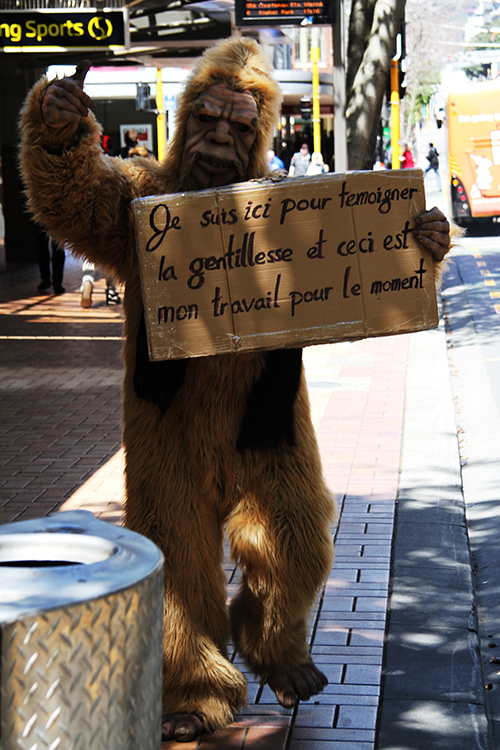 ng Sports
Je suis ici pour temoigner
la gentillesse et ceci est
mon travail pour le moment